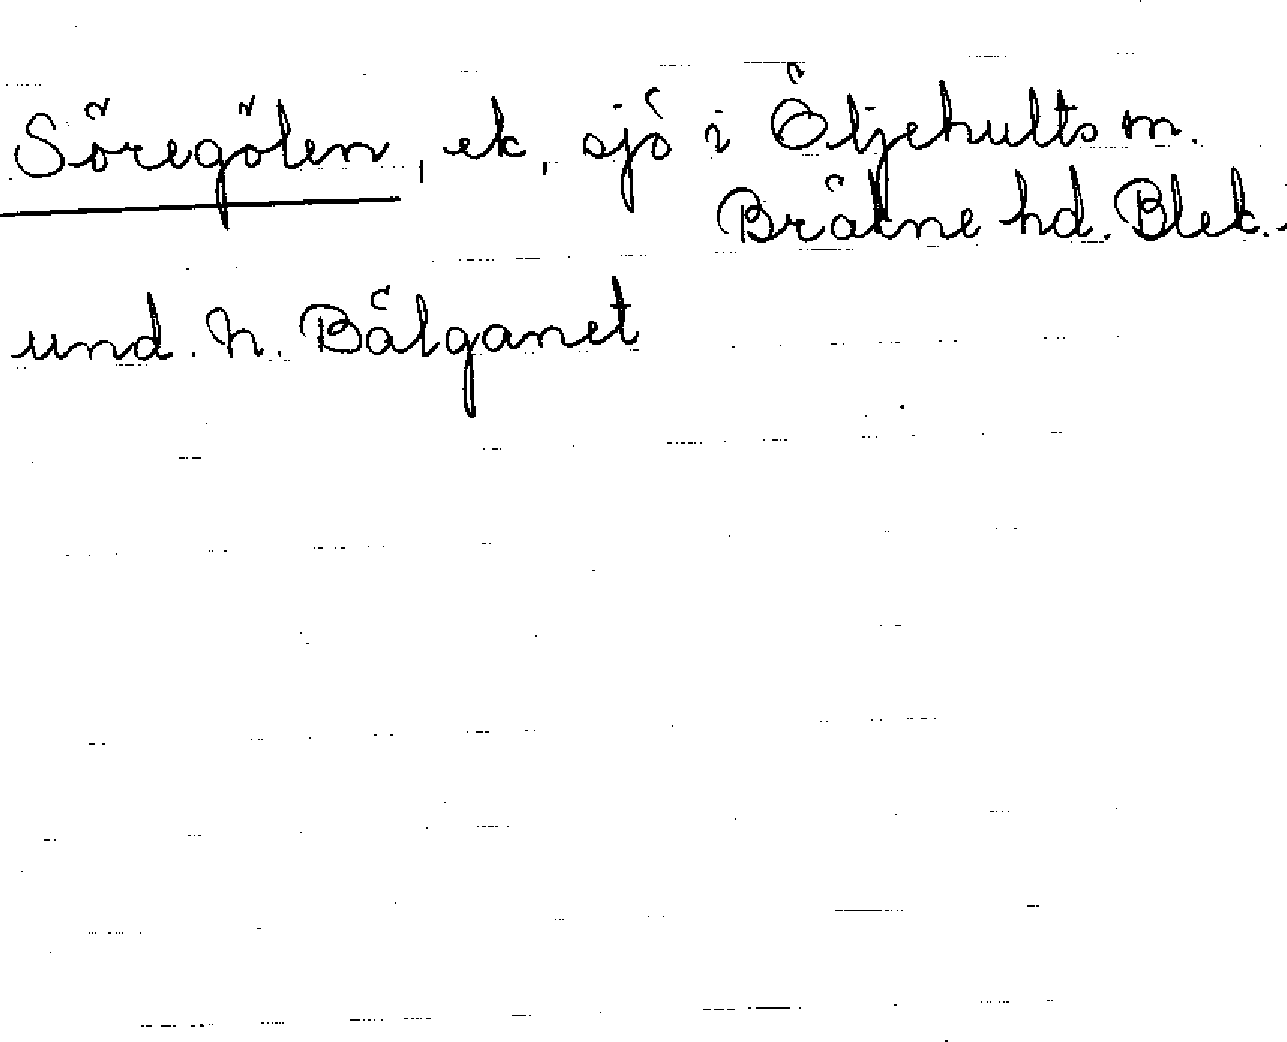 Söregölen, ek, sjö i Öljehults sn.
Bräkne hd. Blek. l
und. h. Bälganet